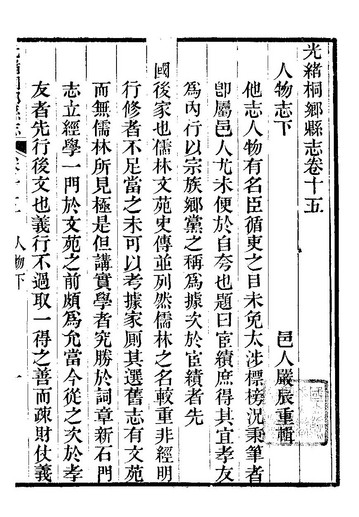 光緒桐鄉縣志卷十五
邑人嚴辰重輯
人物志下
他志人物有名臣循吏之目未免太涉標榜況秉筆者
卽屬邑人尤未便於自夸也題曰宦績庶得其宜孝友
爲內行以宗族鄉黨之稱爲據次於宦績者先
國後家也儒林文苑史傳並列然儒林之名較重非經明
行修者不足當之未可以考據家厠其選舊志有文苑
而無儒林所見極是但講實學者究勝於詞章新石門
志立經學一門於文苑之前頗爲允當今從之次於孝
友者先行後文也義行不過取一得之善而疏財仗義
人物下
一